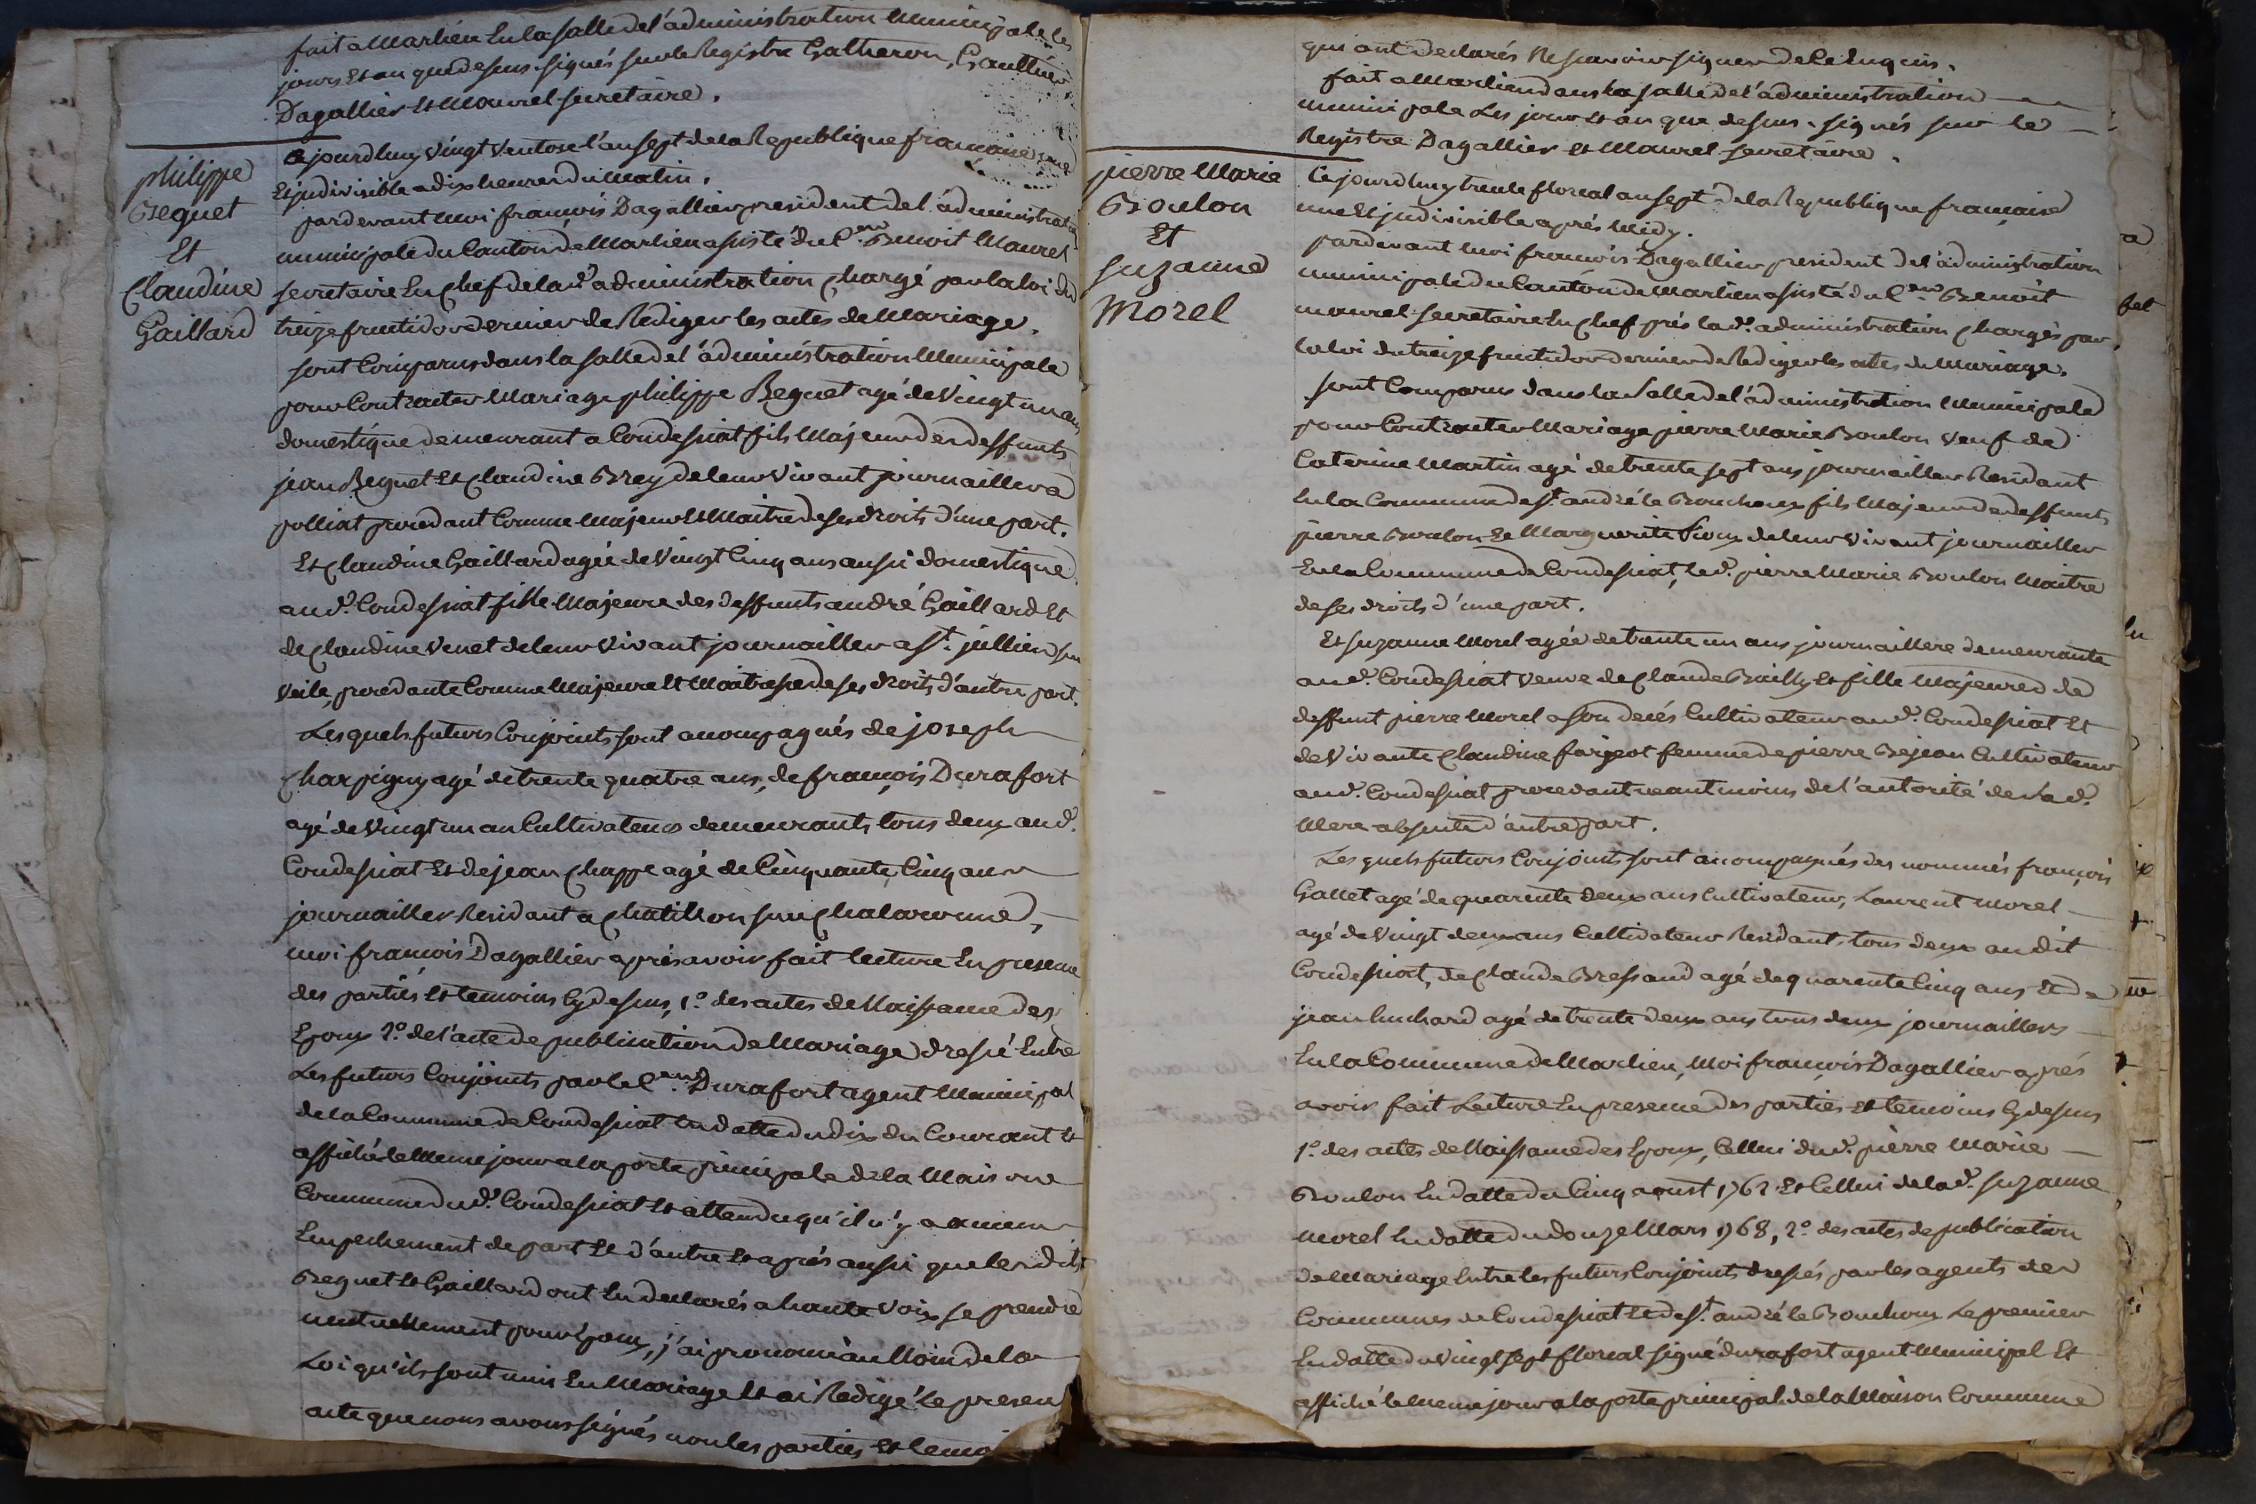 fait a Marlieu En la salle de l'administration Municipale les
jours Et an que desus. signés sur le Registre Gatheron, Gaulthier
Dagallier Et Maurel secretaire.
philippe
Beguet
Et
Claudine
Gaillard
Cejourdhuy vingt Ventose l'an sept de la Republique francaise une
Et jndivisible a dix heures du Matin.
pardevant Moi françois Dagallier president de l'administration
municipale du Canton de Marlieu assisté du C.en Benoit Maurel
secretaire En chef de la d.e administration chargé par la loi du
treize fructidor dernier de Rediger les actes de Mariage.
sont Comparus dans la salle de l'administration Municipale
pour Contracter Mariage philippe Beguet agé de Vingt un ans
domestique demeurant a Condessiat fils Majeur des deffunts
jean Beguet Et Claudine Brey de leur Vivant journaillers a
polliat procedant Comme Majeur Et Maitre de ses droits d'une part.
Et Claudine Gaillard agée de Vingt Cinq ans aussi domestique
aud.t Condessiat fille Majeure des deffunts andré Gaillard Et
de Claudine Venet de leur Vivant journailler a St. jullien sur
Veile, procedante Comme Majeure Et Maitresse de ses droits d'autre part.
Lesquels futurs Conjoints sont acompagnés de joseph
Charpigny agé de trente quatre ans, de françois Durafort
agé de Vingt un an Cultivateurs demeurants tous deux aud.t
Condessiat Et de jean Chappe agé de Cinquante Cinq ans
journailler Residant a Chatillon sur Chalaronne,
moi francois Dagallier aprés avoir fait lecture En presence
des parties Et temoins Cy desus, 1.o des actes de Naissance des
Epoux 2.o de l'acte de publication de Mariage dressé Entre
Les futurs Conjoints par le C.en Durafort agent Municipal
de la Commune de Condessiat En datte du dix du Courant Et
affiché le Meme jour a la porte principale de la Maison
Commune dud.t Condessiat Et attendu qu'il n'y a aucun
Empechement de part Et d'autre Et aprés aussi que lesdits
Beguet Et Gaillard ont En declarés a haute Voix se prendre
mutuellement pour Epoux, j'ai prononcé au Nom de la
Loi qu'ils sont unis En Mariage Et ai Redigé le presen
acte que nous avons signés non les parties Et temoi
qui ont declarés Ne scavoir signer de Ce Enquis.
fait a Marlieu dans la salle de l'administration
municipale Les jour Et an que desus. signés sur le
Registre Dagallier Et Maurel secretaire.
pierre Marie
Boulon
Et
Suzanne
Morel
Cejourdhuy trente floreal an sept de la Republique francaise
une Et jndivisible aprés Midy.
pardevant Moi francois Dagallier president de l'administration
municipale du Canton de Marlieu assisté du C.en Benoit
maurel secretaire En Chef prés la d.e administration chargés par
la loi du treize fructidor dernier de Rediger les actes de Mariage.
sont Comparus dans la Salle de l'administration Municipale
pour Contracter Mariage pierre Marie Boulon veuf de
Caterine Martin agé de trente sept ans journailler Residant
En la Commune de St. andré le Bouchoux fils Majeur des deffunts
pierre Boulon Et Marguerite de leur Vivant journailler
En la Commune de Condessiat, led.t pierre Marie Boulon Maitre
de ses droits d'une part.
Et Suzanne Morel agée de trente un ans journaillere demeurante
aud.t Condessiat Veuve de Claude Bailly Et fille Majeure de
deffunt pierre Morel a son decés Cultivateur aud.t Condessiat Et
de Vivante Claudine fargeot femme de pierre Bejean Cultivateur
aud.t Condessiat procedant neantmoins de l'autorité de sad.e
Mere absente d'autre part.
Lesquels futurs Conjoints sont acompagnés des nommés françois
Gallet agé de quarente deux ans Cultivateur, Laurent Morel
agé de Vingt deux ans Cultivateur Residants tous deux audit
Condessiat, de Claude Bressand agé de quarente Cinq ans Et de
jean huchard agé de trente deux ans tous deux journaillers
En la Commune de Marlieu, Moi françois Dagallier aprés
avoir fait Lecture En presence des parties Et temoins Cy desus
1.o des actes de Naissance des Epoux, Cellui dud.t pierre Marie
Boulon En datte du Cinq aoust 1762 Et Cellui de lad.e Suzanne
Morel En datte du douze Mars 1768, 2.o des actes de publication
de Mariage Entre les futurs Conjoints dressés par les agents des
Communes de Condessiat Et de St. andré le Bouchoux Le premier
En datte du Vingt sept floreal signé durafort agent Municipal Et
affiché le Meme jour a la porte principal de la Maison Commune